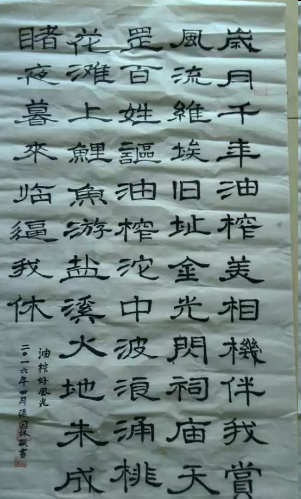 歲月千年油榨美相機伴我賞
風流維埃旧址金光閃祠庙天
罡百姓謳油榨沱中波浪涌桃
花滩上鯉魚游盐溪大地朱成
睹夜暮來临逼我休
油榨好風光
二〇一六年四月書